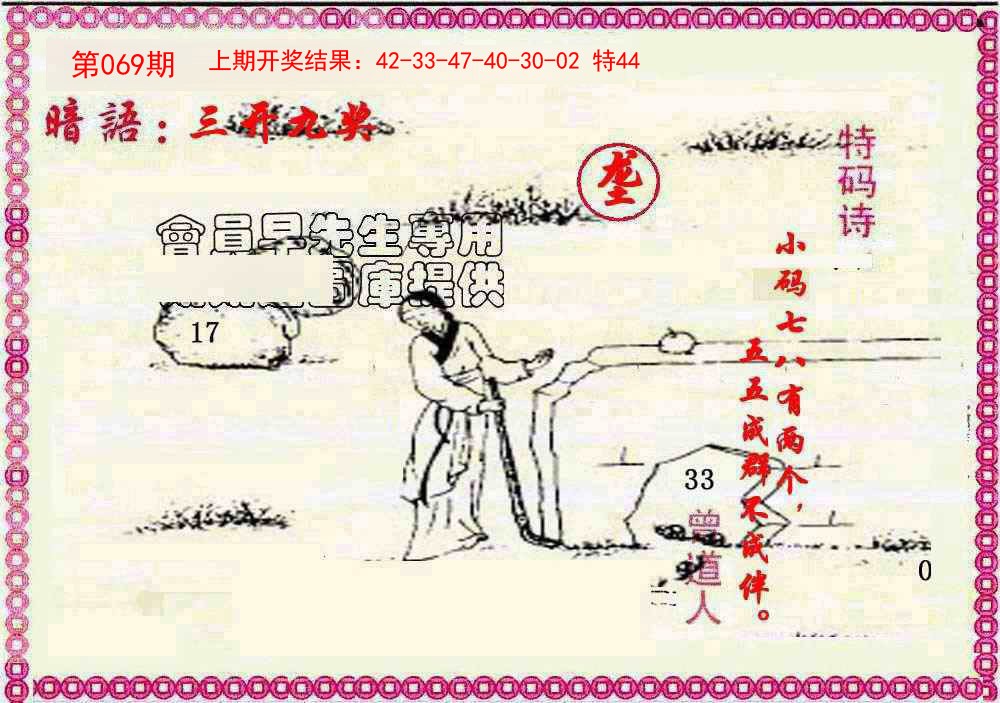 第069期
上期开奖结果：42-33-47-40-30-02 特44
暗語：三开九奖
垄
特码诗
會員早先生專用
圖庫提供
小码七八有两个，
五五成群不成伴。
17
33
曾道人
0